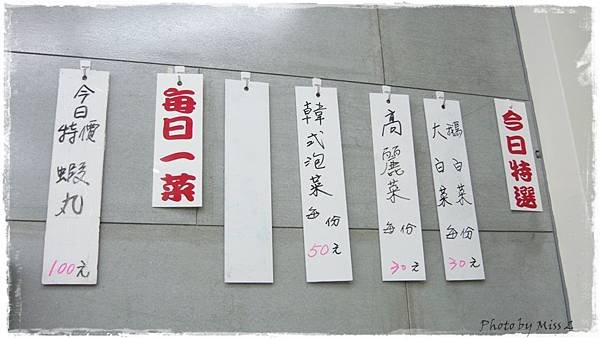 今日
特價
蝦丸
100元
每日一菜
韓式泡菜
每份
50元
高麗菜
每份
30元
大白菜
福白菜
每份
30元
今日特選
Photo by Miss L